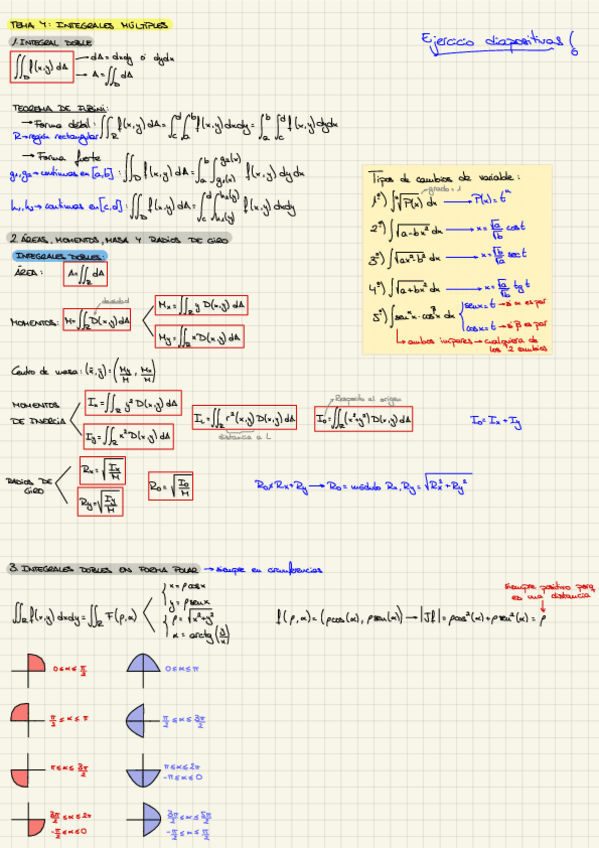 TEMA 4: INTEGRALES MÚLTIPLES
Ejercicio diapositivas!
1. INTEGRAL DOBLE
∬_D f(x,y) dA → dA = dxdy ó dydx
→ A = ∬_D dA
TEOREMA DE FUBINI:
→ Forma débil: ∬_R f(x,y) dA = ∫_c^d ∫_a^b f(x,y) dxdy = ∫_a^b ∫_c^d f(x,y) dydx
R → región rectangular
→ Forma fuerte
g₁, g₂ → continuas en [a,b]: ∬_D f(x,y) dA = ∫_a^b ∫_{g₁(x)}^{g₂(x)} f(x,y) dy dx
h₁, h₂ → continuas en [c,d]: ∬_D f(x,y) dA = ∫_c^d ∫_{h₁(y)}^{h₂(y)} f(x,y) dxdy
Tipos de cambios de variable:
grado = 1
1º) ∫ ⁿ√P(x) dx → P(x) = tⁿ
2º) ∫ √(a-bx²) dx → x = √a/√b cos t
3º) ∫ √(ax²-b²) dx → x = √b/√a sec t
4º) ∫ √(a+bx²) dx → x = √a/√b tg t
5º) ∫ senᵅx · cosᵝx dx
senx = t → si α es par
cosx = t → si β es par
→ ambos impares → cualquiera de
los 2 cambios
2. ÁREAS, MOMENTOS, MASA Y RADIOS DE GIRO
INTEGRALES DOBLES:
ÁREA: A = ∬_R dA
densidad
MOMENTOS: M = ∬_R D(x,y) dA
Mx = ∬_R y D(x,y) dA
My = ∬_R x D(x,y) dA
Centro de masa: (x̄, ȳ) = (My/M, Mx/M)
MOMENTOS DE INERCIA
Ix = ∬_R y² D(x,y) dA
Iy = ∬_R x² D(x,y) dA
I_L = ∬_R r²(x,y) D(x,y) dA
distancia a L
Respecto al origen
I₀ = ∬_R (x²+y²) D(x,y) dA
I₀ = Ix + Iy
RADIOS DE GIRO
Rx = √(Ix/M)
Ry = √(Iy/M)
R₀ = √(I₀/M)
R₀ ≠ Rx + Ry → R₀ = módulo Rx, Ry = √(Rx² + Ry²)
3. INTEGRALES DOBLES EN FORMA POLAR → siempre en circunferencias
∬_R f(x,y) dxdy = ∬_R F(ρ,α)
x = ρ cosα
y = ρ senα
ρ = √(x²+y²)
α = arctg(y/x)
f(ρ,α) = (ρcos(α), ρsen(α)) → |Jf| = ρcos²(α) + ρsen²(α) = ρ
siempre positivo porq
es una distancia
0 ≤ α ≤ π/2
0 ≤ α ≤ π
π/2 ≤ α ≤ π
π/2 ≤ α ≤ 3π/2
π ≤ α ≤ 3π/2
π ≤ α ≤ 2π
-π ≤ α ≤ 0
3π/2 ≤ α ≤ 2π
-π/2 ≤ α ≤ 0
3π/2 ≤ α ≤ 5π/2
-π/2 ≤ α ≤ π/2